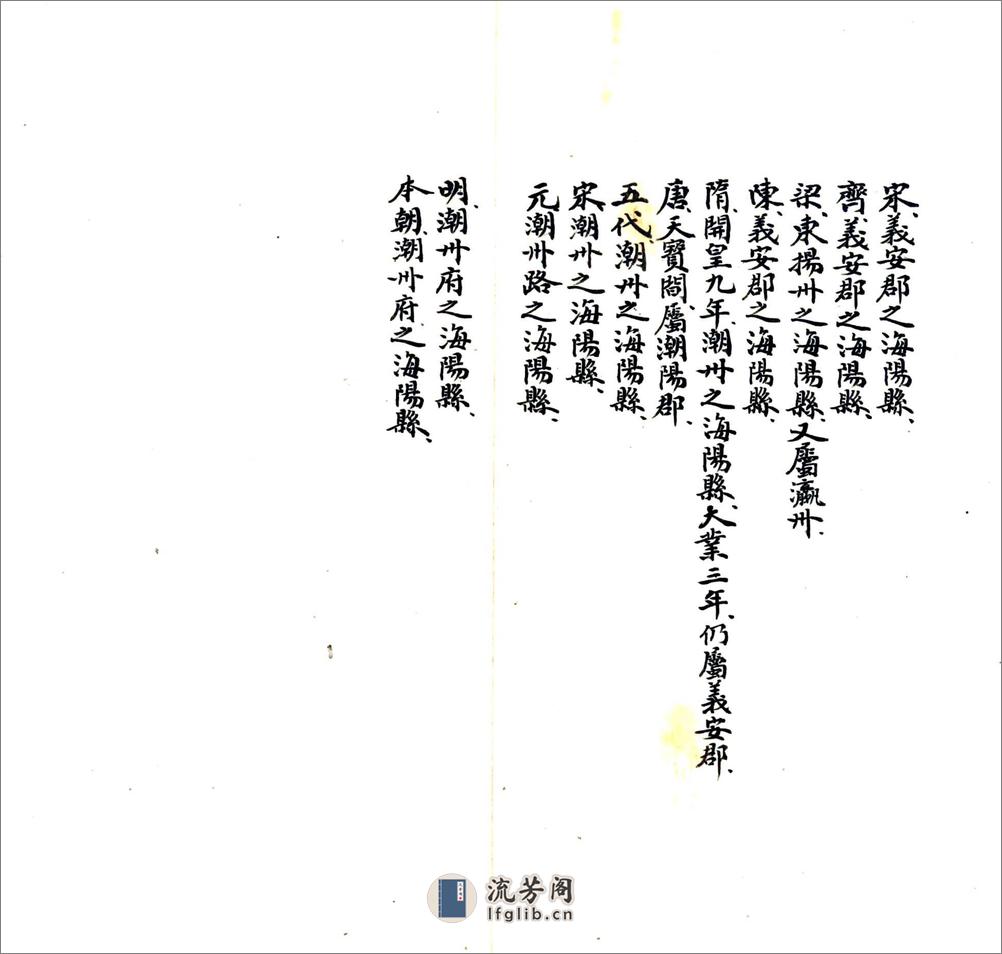 宋、義安郡之海陽縣、
齊、義安郡之海陽縣、
梁、東揚州之海陽縣、又屬瀛州、
陳、義安郡之海陽縣、
隋、開皇九年、潮州之海陽縣、大業三年、仍屬義安郡、
唐、天寶間、屬潮陽郡、
五代、潮州之海陽縣、
宋、潮州之海陽縣、
元、潮州路之海陽縣、
明、潮州府之海陽縣、
本朝、潮州府之海陽縣、
流芳阁
lfglib.cn